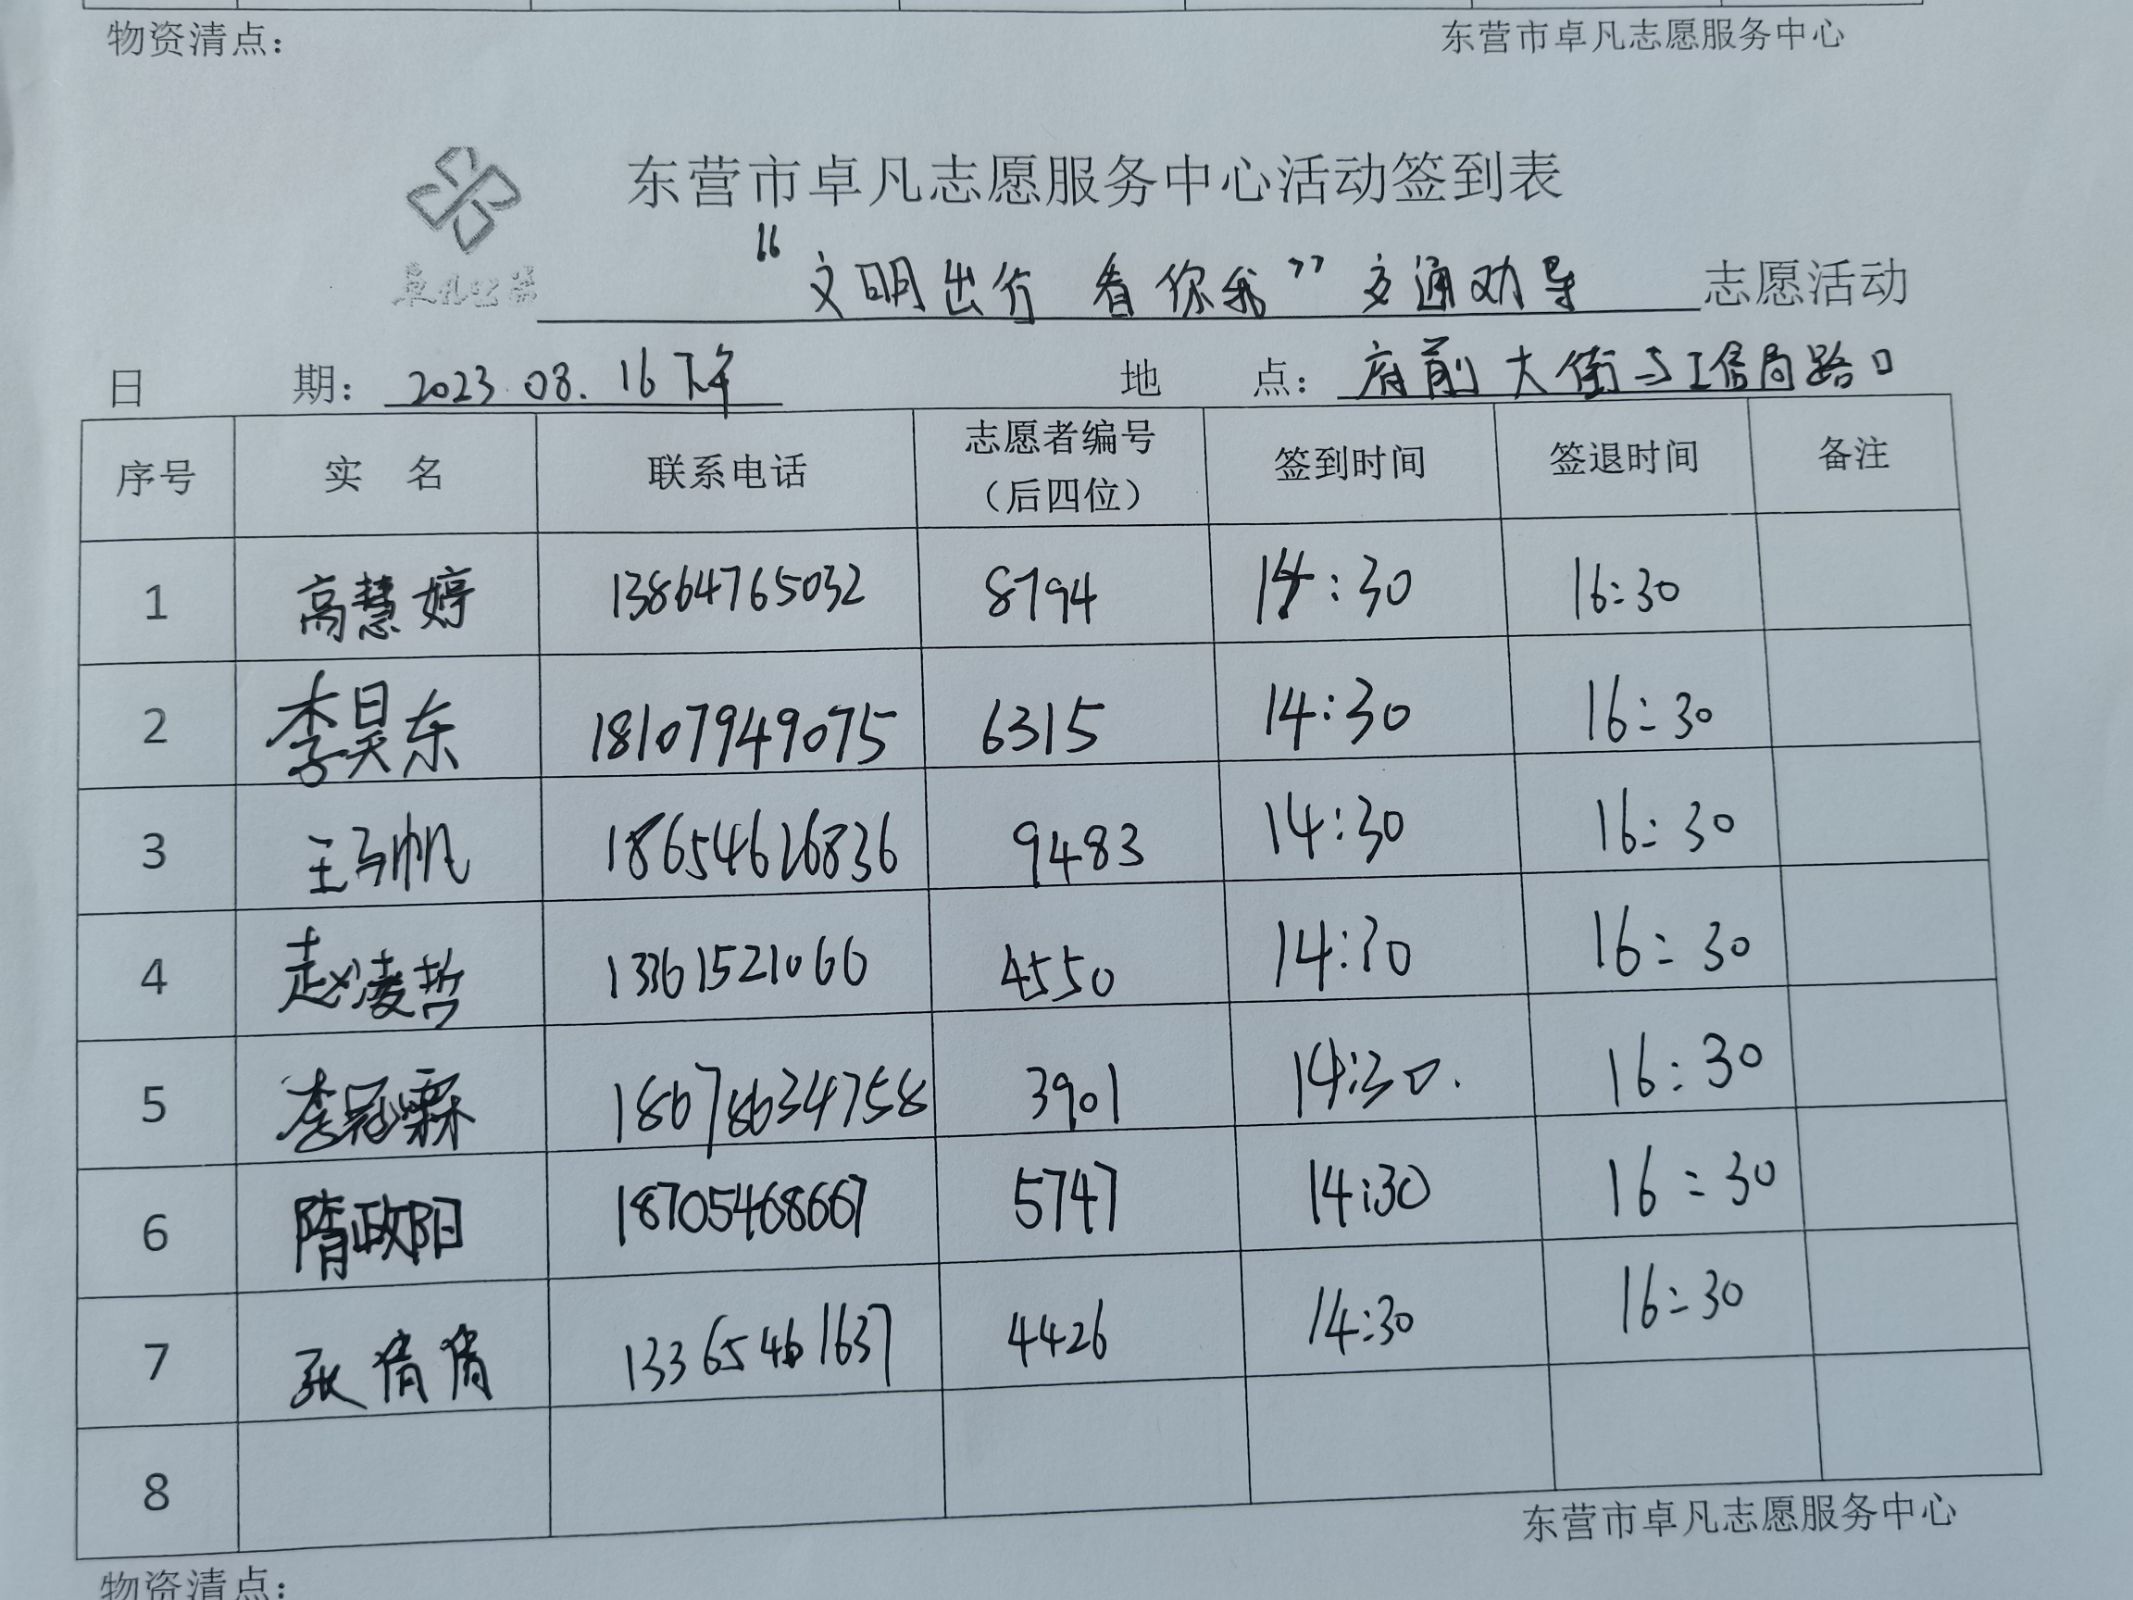 物资清点： 东营市卓凡志愿服务中心
东营市卓凡志愿服务中心活动签到表
卓凡公益 “文明出行 看你我”交通劝导 志愿活动
日 期：2023.08.16下午 地 点：府前大街与工信局路口
序号 实 名 联系电话 志愿者编号（后四位） 签到时间 签退时间 备注
1 高慧婷 13864765032 8794 14:30 16:30
2 李昊东 18107949075 6315 14:30 16:30
3 王予帆 18654626836 9483 14:30 16:30
4 赵凌哲 13361521066 4550 14:30 16:30
5 李冠霖 18678634758 3901 14:30. 16:30
6 隋政阳 18705468667 5747 14:30 16:30
7 张倩倩 13365461637 4426 14:30 16:30
8
东营市卓凡志愿服务中心
物资清点：